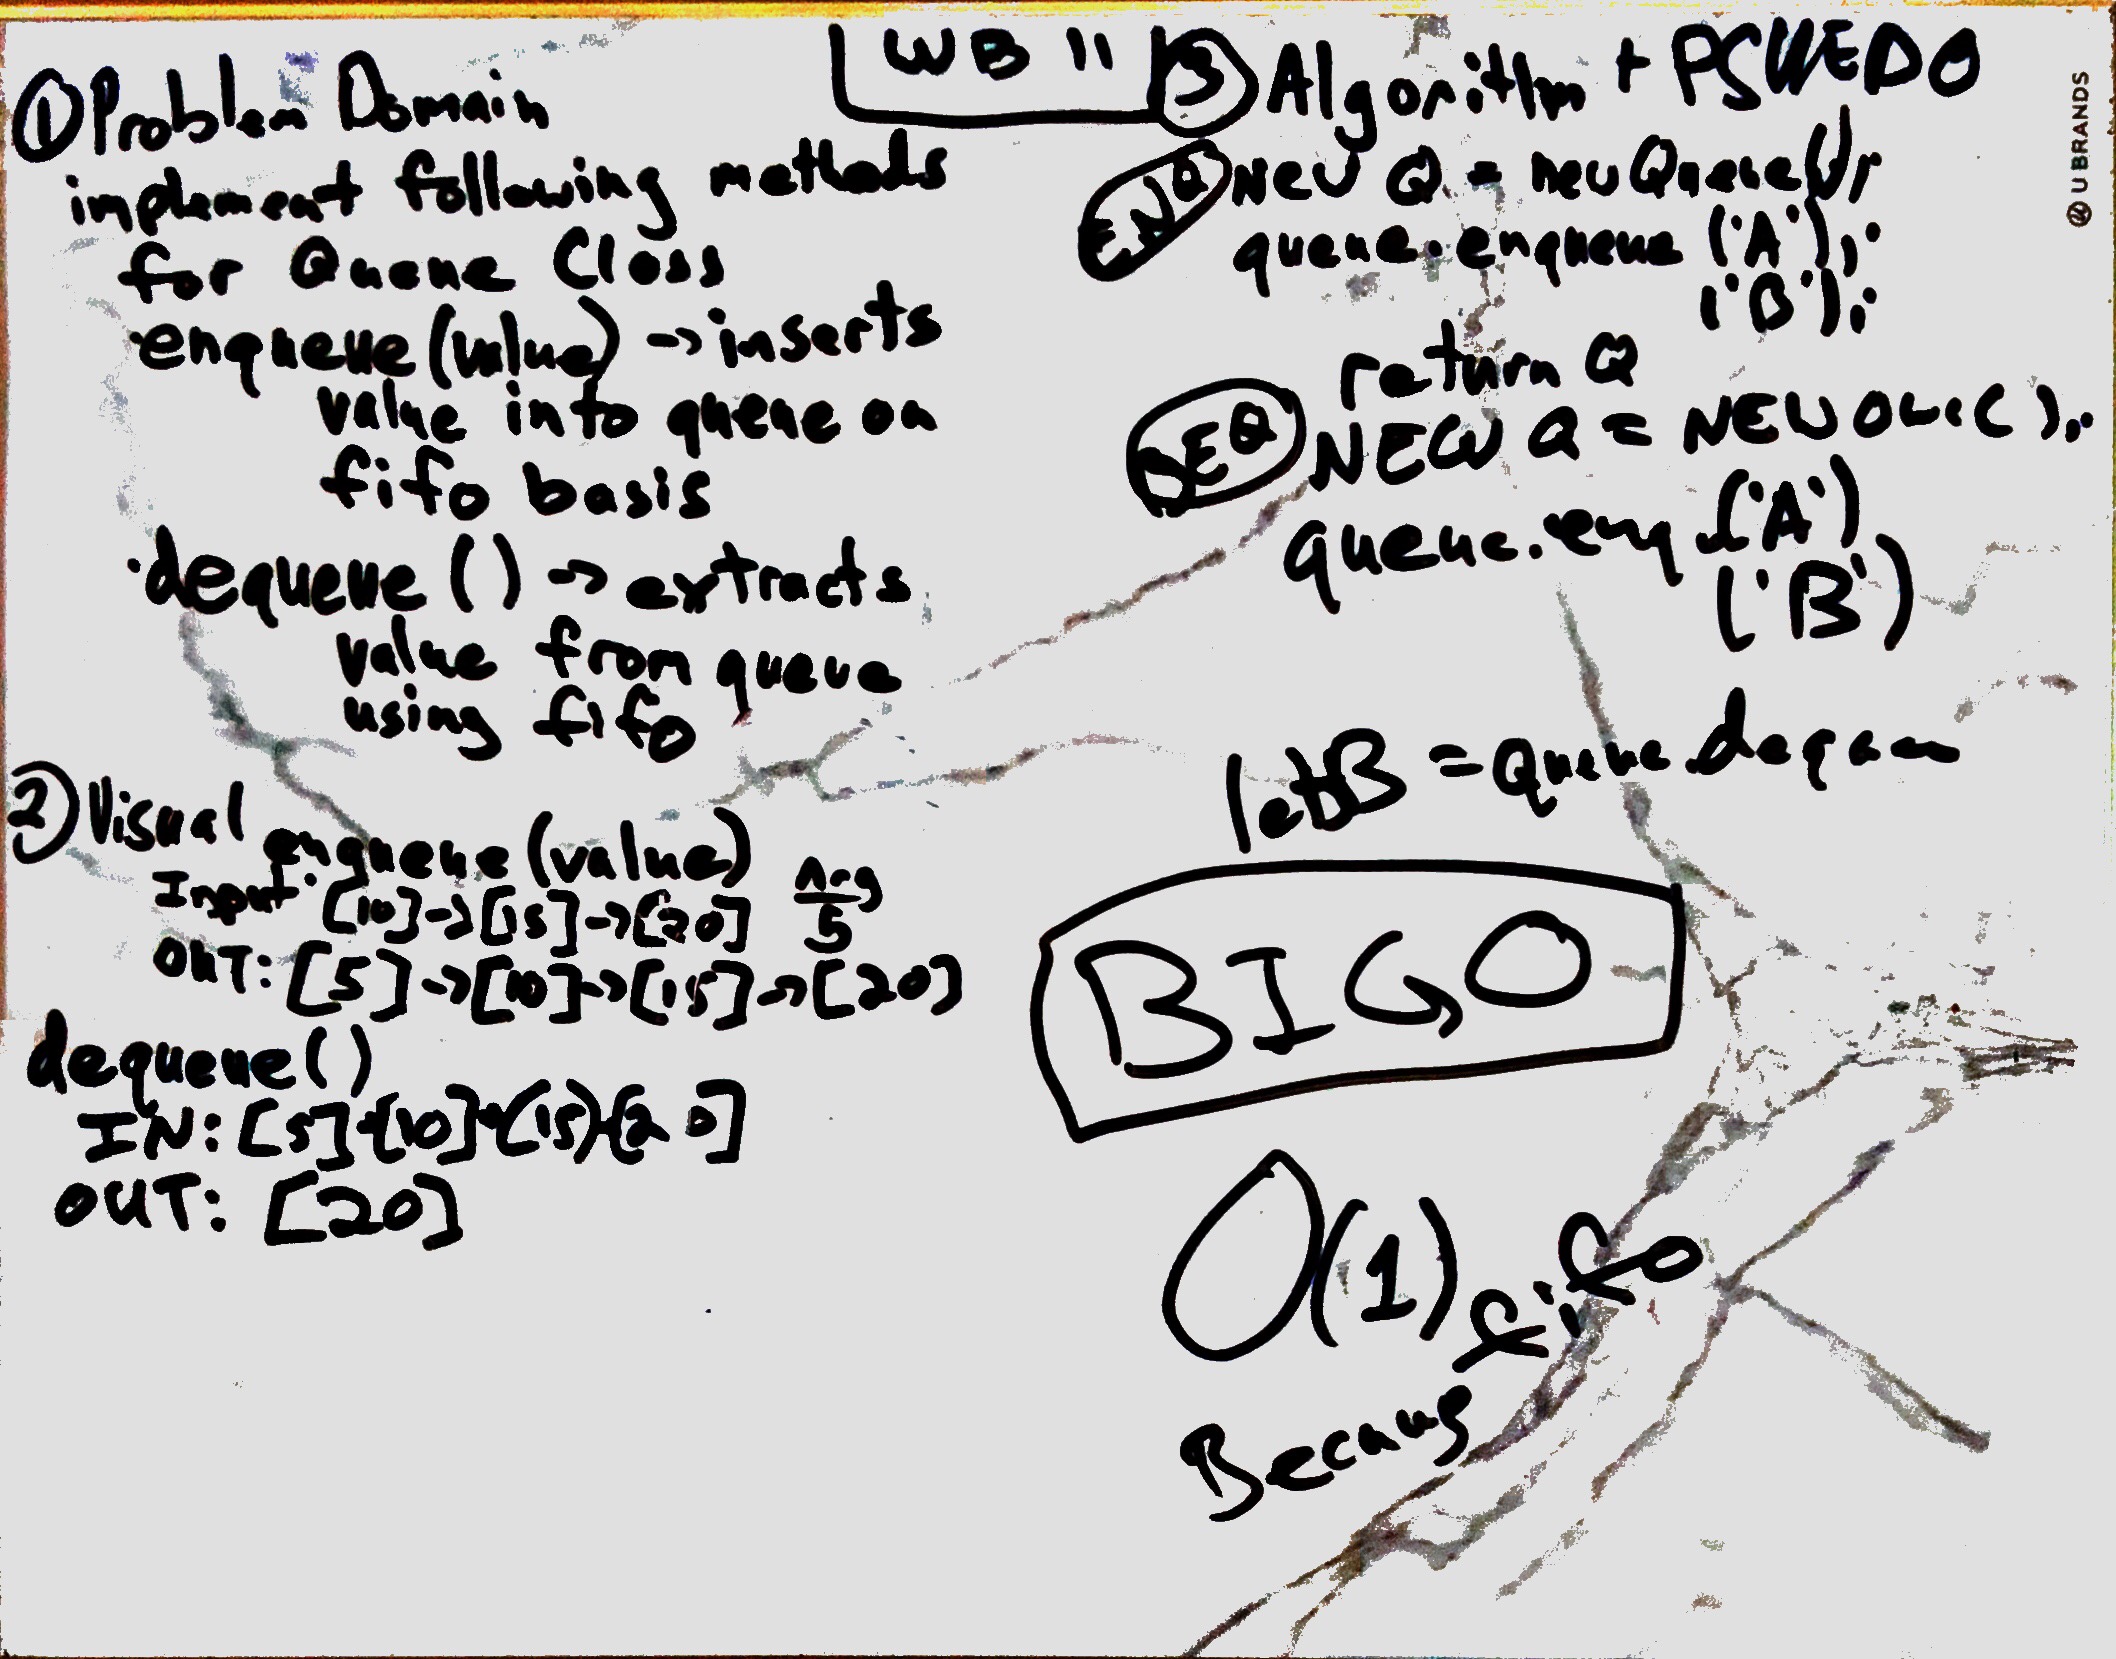 WB 11
① Problem Domain
implement following methods
for Queue Class
· enqueue (value) -> inserts
value into queue on
fifo basis
· dequeue () -> extracts
value from queue
using fifo
② Visual
enqueue (value)
Input: [10] -> [15] -> [20] Arg 5
OUT: [5] -> [10] -> [15] -> [20]
dequeue()
IN: [5] [10] (15) [20]
OUT: [20]
③ Algorithm + PSUEDO
ENQ
New Q = new Queue();
queue.enqueue ('A');
('B');
return Q
DEQ
NEW Q = NEW
queue.enq ('A')
('B')
let B = Queue.
BIG O
O(1)
fifo
UBRANDS